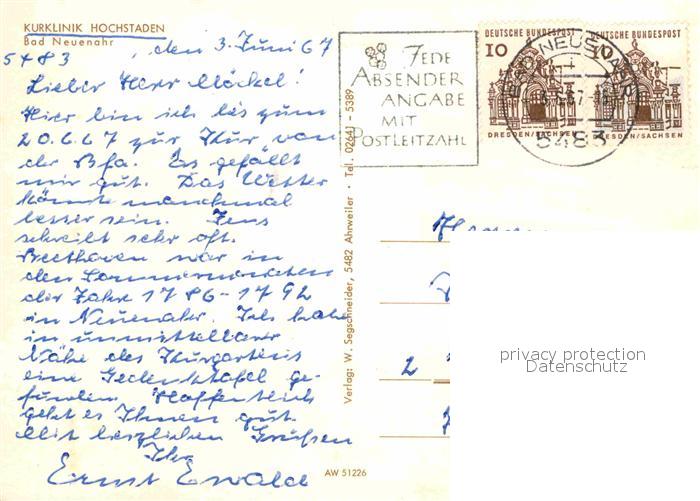 KURKLINIK HOCHSTADEN
Bad Neuenahr
5483, den 3. Juni 67
Lieber Herr Möckel!
Hier bin ich bis zum
20.6.67 zur Kur von
der Bfa. Es gefällt
mir gut. Das Wetter
könnte manchmal
besser sein. Jens
schreibt sehr oft.
Beethoven war in
den Sommermonaten
der Jahre 1786-1792
in Neuenahr. Ich habe
in unmittelbarer
Nähe des Kurgartens
eine Gedenktafel ge-
funden. Hoffentlich
geht es Ihnen gut.
Mit herzlichen Grüßen
Ihr
Ernst Ewald
Verlag: W. Segschneider, 5482 Ahrweiler · Tel. 02641 - 5389
AW 51226
JEDE
ABSENDER
ANGABE
MIT
POSTLEITZAHL
DEUTSCHE BUNDESPOST
10
DRESDEN/SACHSEN
DEUTSCHE BUNDESPOST
10
DRESDEN/SACHSEN
BAD NEUENAHR
5483
2
privacy protection
Datenschutz